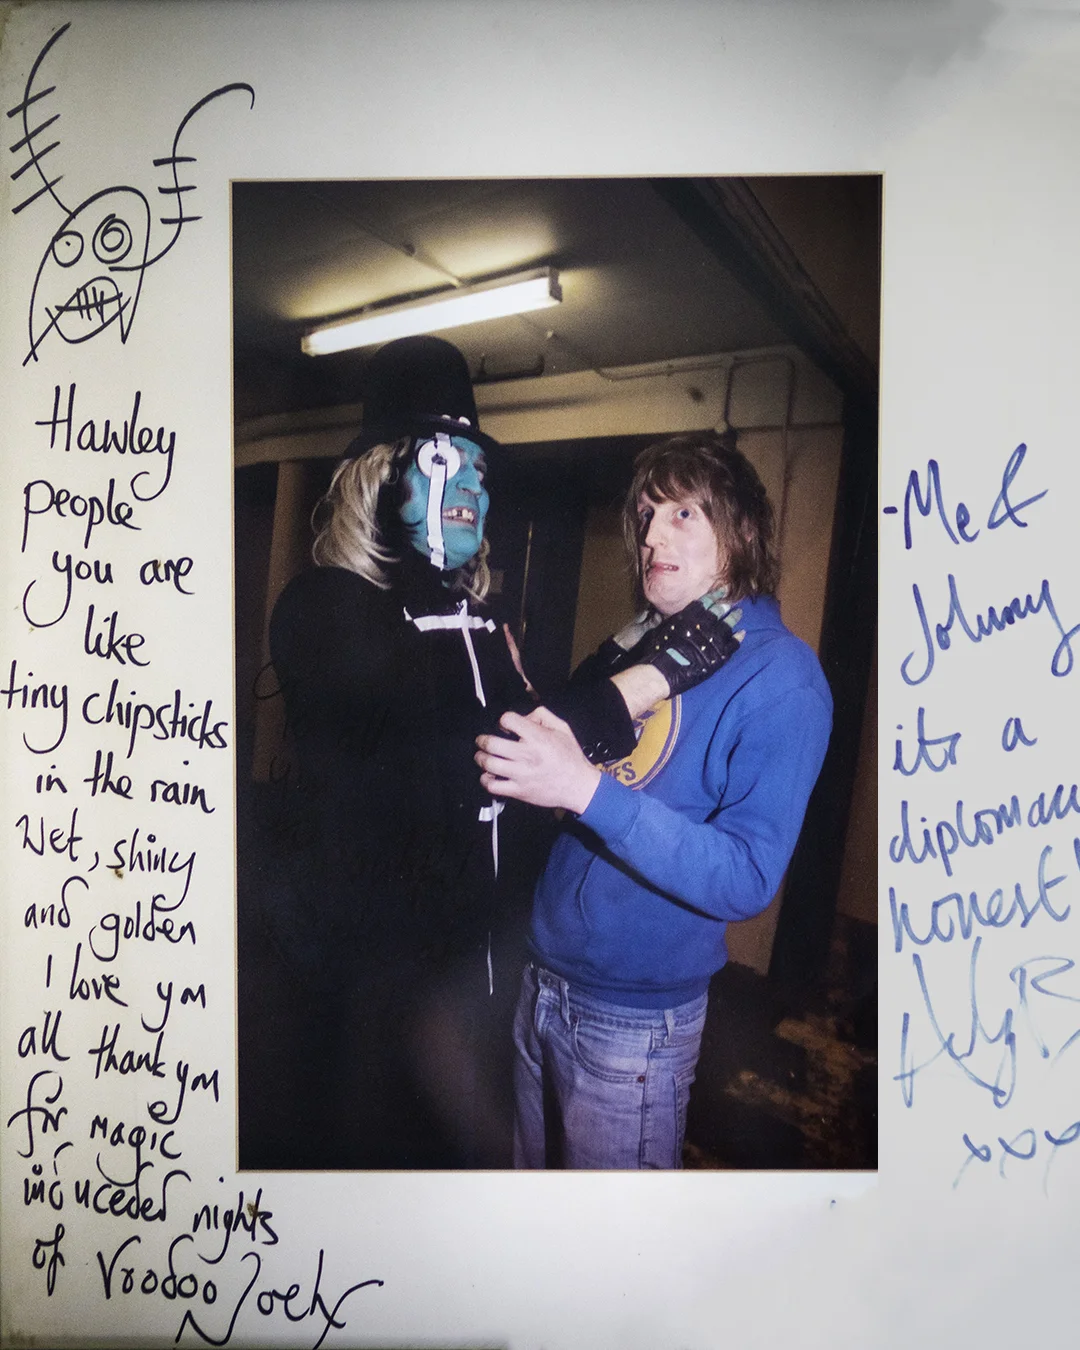 Hawley
people
you are
like
tiny chipsticks
in the rain
Wet, shiny
and golden
I love you
all thank you
for magic
nights
of Voodoo
- Me &
Johnny
its a
honest!
xxx